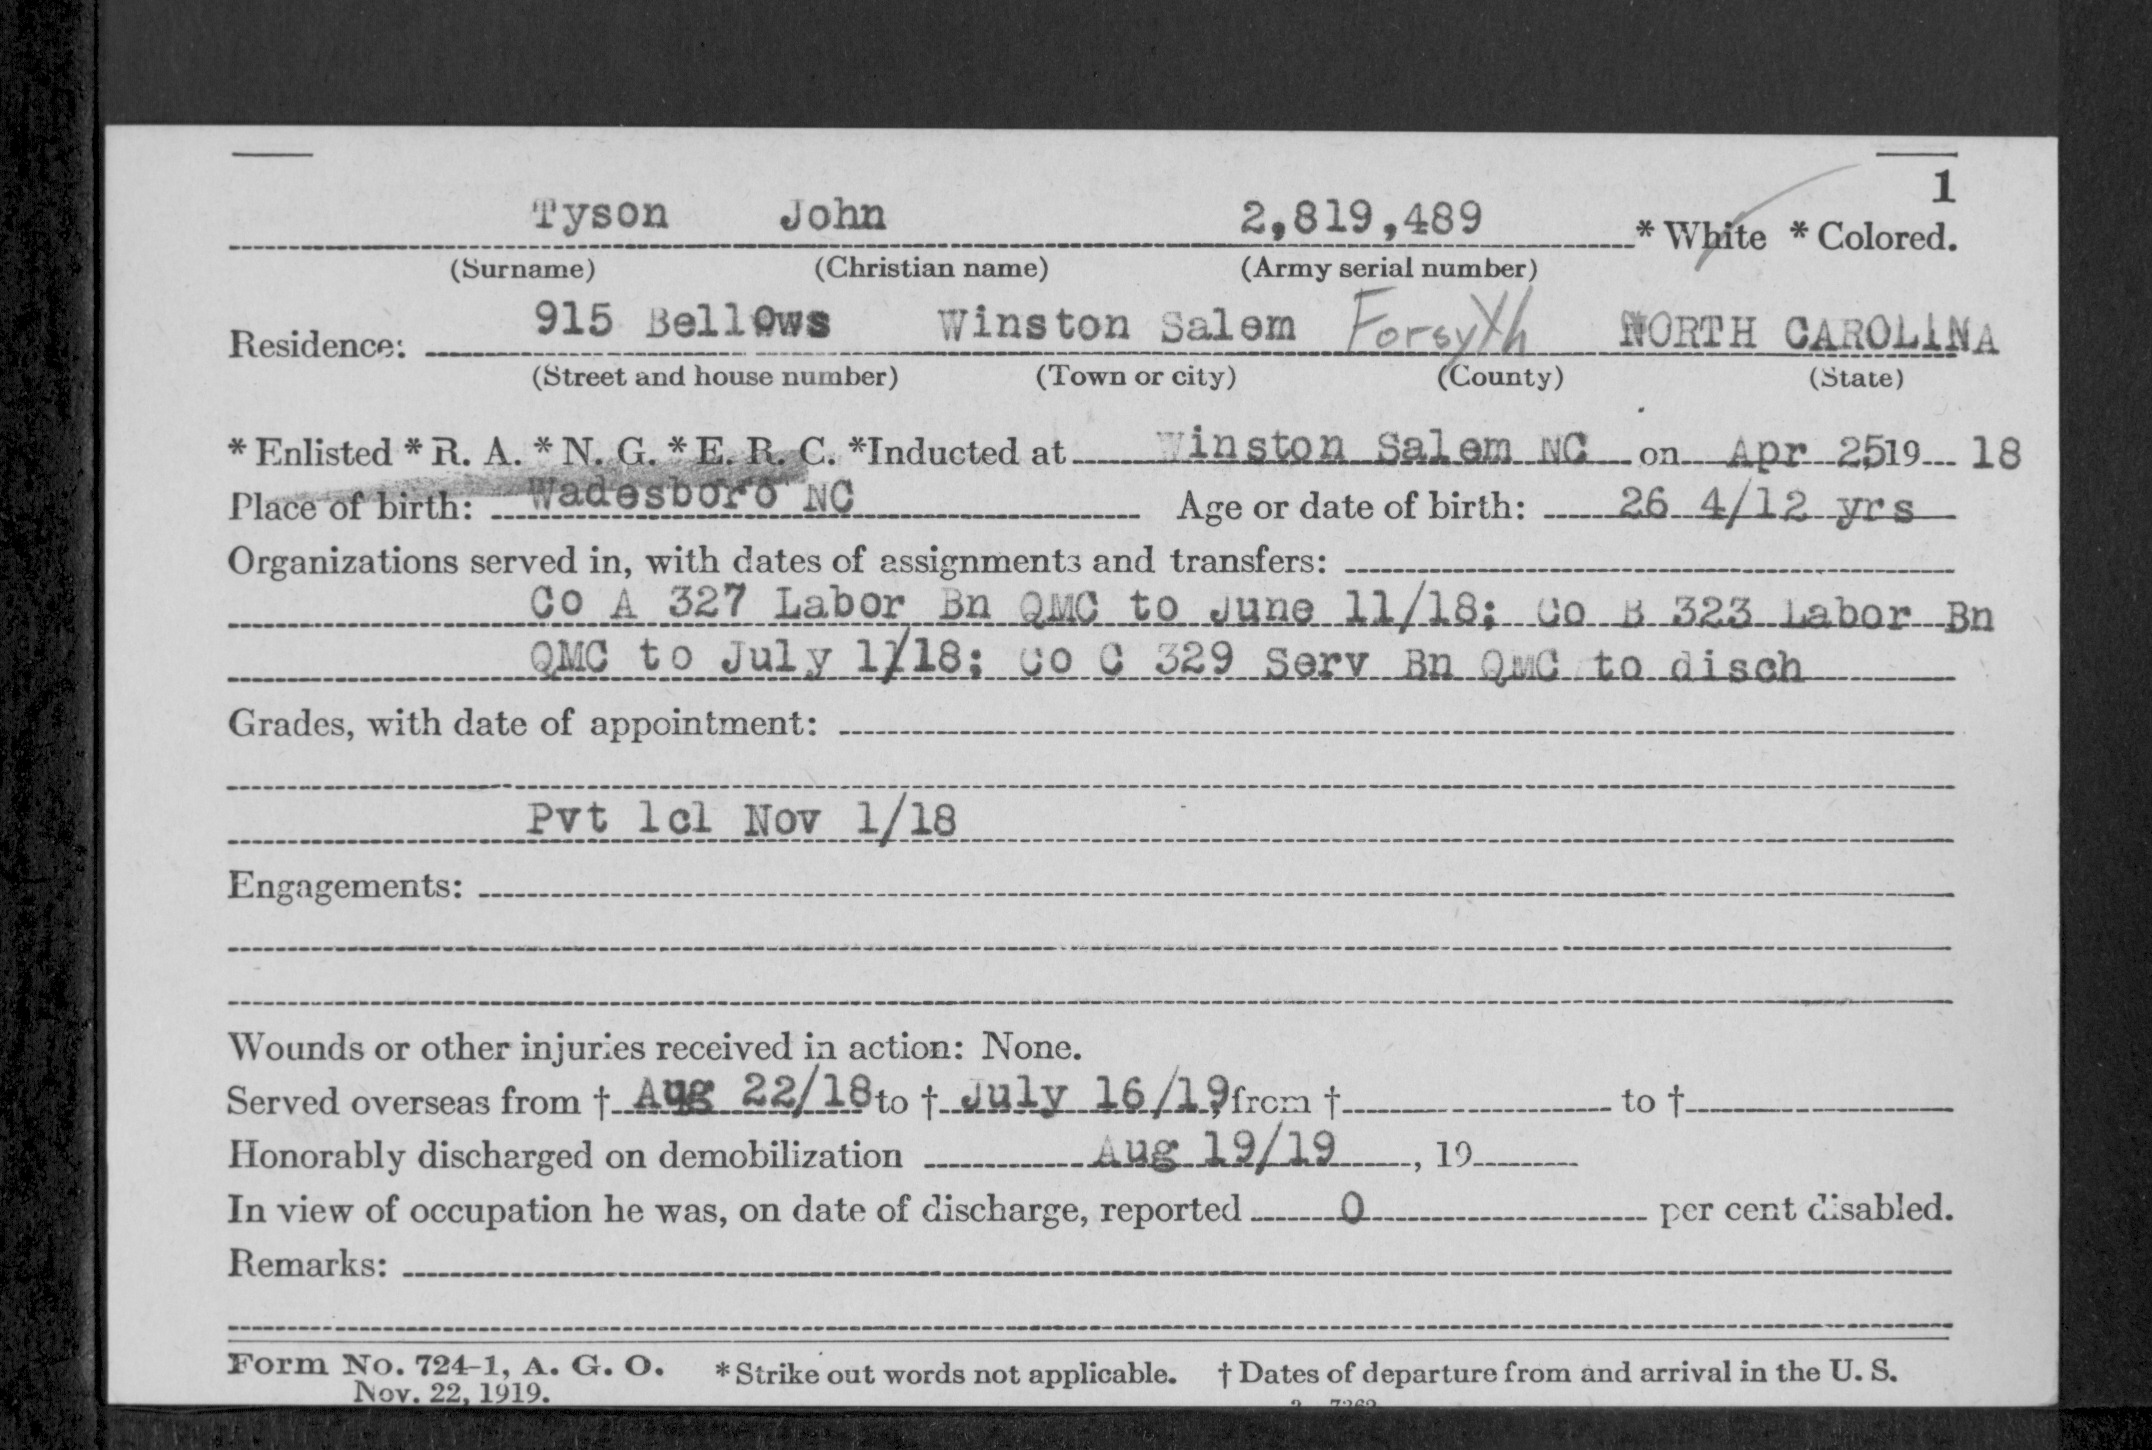 1
Tyson John 2,819,489 * White * Colored.
(Surname) (Christian name) (Army serial number)
Residence: 915 Bellows Winston Salem Forsyth NORTH CAROLINA
(Street and house number) (Town or city) (County) (State)
* Enlisted * R. A. * N. G. * E. R. C. *Inducted at Winston Salem NC on Apr 25, 19 18
Place of birth: Wadesboro NC Age or date of birth: 26 4/12 yrs
Organizations served in, with dates of assignments and transfers:
Co A 327 Labor Bn QMC to June 11/18; Co B 323 Labor Bn
QMC to July 11/18; Co C 329 Serv Bn QMC to disch
Grades, with date of appointment:
Pvt 1cl Nov 1/18
Engagements:
Wounds or other injuries received in action: None.
Served overseas from † Aug 22/18 to † July 16/19, from † to †
Honorably discharged on demobilization Aug 19/19, 19
In view of occupation he was, on date of discharge, reported 0 per cent disabled.
Remarks:
Form No. 724-1, A. G. O. * Strike out words not applicable. † Dates of departure from and arrival in the U. S.
Nov. 22, 1919.